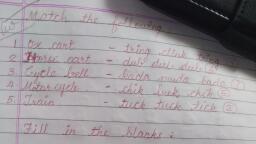 Match the following
1 Ox cart - tring
2 Horse cart - dub dub dub
3. Cycle bell - bada
4. Motor cycle - chik buck chik
5. Train - tuck tuck tick
Fill in the blanks :